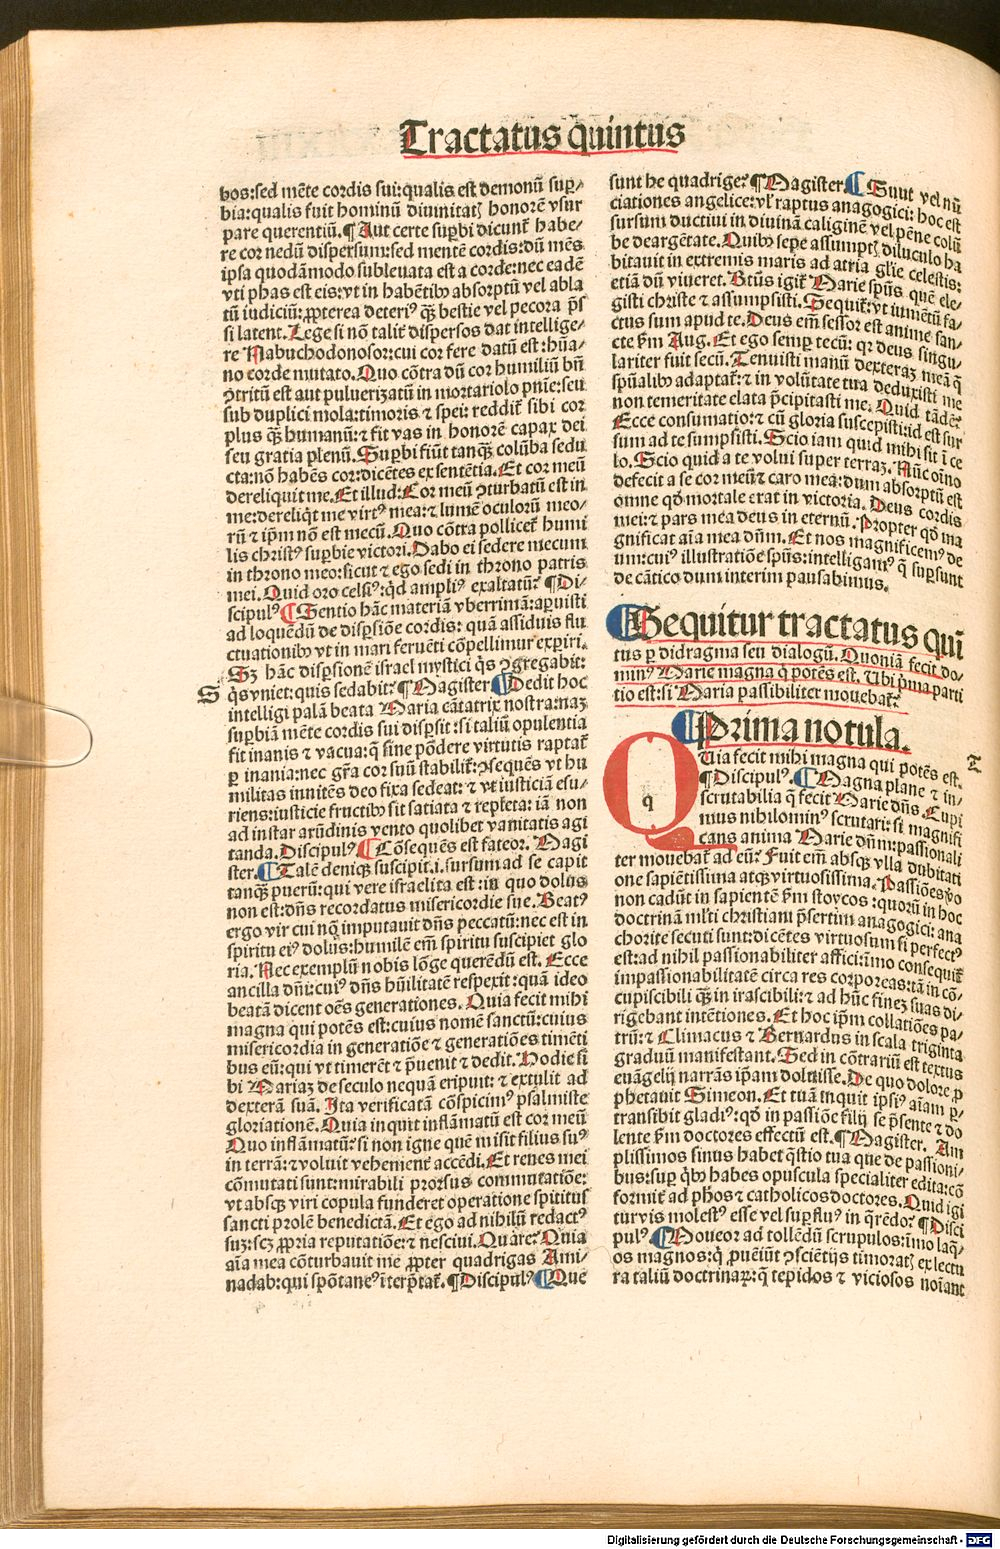 Tractatus quintus
bos:sed mēte cordis sui:qualis est demonū sup̄-
bia:qualis fuit hominū diuinitatꝭ honorē vsur
pare querentiū.¶Aut certe supbi dicunt̄ habe-
re cor nedū dispersum:sed mentē cordis:dū mēs
ipsa quodāmodo subleuata est a corde:nec ea dē
vti phas est eis:vt in habētibꝰ absorptū vel abla
tū iudiciū:ꝓpterea deteriꝰ qꝫ bestie vel pecora p̄s
si latent.Lege si nō talit̄ dispersos dat intellige-
re Nabuchodonosor:cui cor fere datū est:hūa-
no corde mutato.Quo cōtra dū cor humiliū bn̄
ꝯtritū est aut puluerizatū in mortariolo pnīe:seu
sub duplici mola:timoris ⁊ spei:reddit̄ sibi cor
plus qꝫ humanū:⁊ fit vas in honorē capax dei
seu gratia plenū.Supbi fiūt tanqꝫ colūba sedu
cta:nō habēs cor:dicētes ex sentētia.Et cor meū
dereliquit me.Et illud:Cor meū ꝯturbatū est in
me:dereliqt me virtꝰ mea:⁊ lumē oculorū meo-
rū ⁊ ipm nō est mecū.Quo cōtra pollicet̄ humi
lis christꝰ supbie victori.Dabo ei sedere mecum
in throno meo:sicut ⁊ ego sedi in throno patris
mei.Quid oro celsiꝰ:qd ampliꝰ exaltatū? ¶Di-
scipulꝰ ¶Sentio hāc materiā vberrimā:apuisti
ad loquēdū de dispsiōe cordis: quā assiduis flu
ctuationibꝰ vt in mari feruēti cōpellimur expiri.
Sꝫ hāc dispsionē israel mystici qs ꝯgregabit:
S
qs vniet:quis sedabit? ¶Magister ¶Dedit hoc
intelligi palā beata Maria cātatrix nostra:naꝫ
supbiā mēte cordis sui dispsit:si taliū opulentia
fit inanis ⁊ vacua:q sine pōdere virtutis raptat̄
p inania:nec gr̄a cor suū stabilit̄:ꝯsequēs vt hu
militas innitēs deo fixa sedeat:⁊ vt iusticiā esu-
riens:iusticie fructibꝰ sit satiata ⁊ repleta:iā non
ad instar arūdinis vento quolibet vanitatis agi
tanda.Discipulꝰ.¶Cōsequēs est fateor. Magi
ster.¶Talē deniqꝫ suscipit.i.sursum ad se capit
tanqꝫ puerū:qui vere israelita est:in quo dolus
non est:dn̄s recordatus misericordie sue.Beatꝰ
ergo vir cui nō imputauit dn̄s peccatū:nec est in
spiritu eiꝰ dolus:humilē em̄ spiritu suscipiet glo
ria. Nec exemplū nobis lōge querēdū est. Ecce
ancilla dn̄i:cuiꝰ dn̄s hūilitatē respexit:quā ideo
beatā dicent oēs generationes. Quia fecit mihi
magna qui potēs est:cuius nomē sanctū:cuius
misericordia in generatiōe ⁊ generatiōes timēti
bus eū:qui vt timerēt ⁊ p̄uenit ⁊ dedit. Hodie si
bi Mariaꝫ de seculo nequā eripuit: ⁊ extulit ad
dexterā suā. Ita verificatā cōspicimꝰ psalmiste
gloriationē.Quia inquit inflāmatū est cor meū
Quo inflāmatū?si non igne quē misit filius suꝰ
in terrā:⁊ voluit vehemēter accēdi.Et renes mei
cōmutati sunt:mirabili prorsus commutatiōe:
vt absqꝫ viri copula funderet operatione spiritus
sancti prolē benedictā.Et ego ad nihilū redactꝰ
suꝫ:scꝫ ꝓpria reputatiōe:⁊ nesciui.Quare?Quia
aīa mea cōturbauit me ꝓpter quadrigas Ami-
nadab:qui spōtaneꝰ īterp̄tat̄.¶Discipulꝰ¶Que
sunt he quadrige?¶Magister¶Sunt vel nū
ciationes angelice:vl raptus anagogici: hoc est
sursum ductiui in diuinā caliginē vel pēne colū
be deargētate.Quibꝰ sepe assumptꝭ diluculo ha
bitauit in extremis maris ad atria gl̄ie celestis:
etiā dū viueret.Btūs igit̄ Marie sp̄us quē ele-
gisti christe ⁊ assumpsisti.Sequit̄:vt iumētū fa-
ctus sum apud te.Deus em̄ sessor est anime san-
cte fm Aug.Et ego semp tecū: qꝛ deus singu-
lariter fuit secū.Tenuisti manū dexteraꝫ meā q
spūalibꝰ adaptat̄:⁊ in volūtate tua deduxisti me
non temeritate elata p̄cipitasti me.Quid tādē?
Ecce consumatio:⁊ cū gloria suscepisti:id est sur
sum ad te sumpsisti.Scio iam quid mihi sit ī ce
lo.Scio quid a te volui super terraꝫ. Nūc oīno
defecit a se cor meū ⁊ caro mea:dum absorptū est
omne qd mortale erat in victoria. Deus cordis
mei:⁊ pars mea deus in eternū.Propter qd ma
gnificat aīa mea dūm.Et nos magnificemꝰ de
um:cuiꝰ illustratiōe spūs:intelligamꝰ q supsunt
de cātico dum interim pausabimus.
¶Sequitur tractatus quī
tus p didragma seu dialogū.Quoniā fecit do-
minꝰ Marie magna q potēs est. Ubi p̄ma parti
tio est:si Maria passibiliter mouebat̄?
¶Prima notula.
q
Uia fecit mihi magna qui potēs est.
T
¶Discipulꝰ.¶Magna plane ⁊ in-
scrutabilia q fecit Marie dn̄s. Cupi
mus nihilominꝰ scrutari:si magnifi
cans anima Marie dn̄m:passionali
ter mouebat̄ ad eū? Fuit em̄ absqꝫ vlla dubitati
one sapiētissima atqꝫ virtuosissima.Passiōes vo
non cadūt in sapientē fm stoycos:quorū in hoc
doctrinā ml̄ti christiani p̄sertim anagogici:ana
chorite secuti sunt:dicētes virtuosum si perfectꝰ
est:ad nihil passionabiliter affici:īmo consequit̄
impassionabilitatē circa res corporeas:tā in cō-
cupiscibili qꝫ in irascibili:⁊ ad hūc fineꝫ suas di-
rigebant intētiones.Et hoc ipm collatiōes pa-
trū:⁊ Climacus ⁊ Bernardus in scala triginta
graduū manifestant.Sed in cōtrariū est textus
euāgelij narrās ipam doluisse.De quo dolore p
phetauit Simeon.Et tuā inquit ipsiꝰ aīam p-
transibit gladiꝰ:qd in passiōe filij se p̄sente ⁊ do
lente fm doctores effectū est.¶Magister. Am
plissimos sinus habet qstio tua que de passioni-
bus:sup qbꝰ habes opuscula specialiter edita:cō
formit̄ ad phōs ⁊ catholicos doctores.Quid igi
tur vis molestꝰ esse vel supfluꝰ in q̄rēdo? ¶Disci
pulꝰ.¶Moueor ad tollēdū scrupulos:īmo laq-
os magnos:q p̄ueiūt ꝯsciētijs timoratꝭ ex lectu
ra taliū doctrinaꝝ:q tepidos ⁊ viciosos noīant
Digitalisierung gefördert durch die Deutsche Forschungsgemeinschaft - DFG